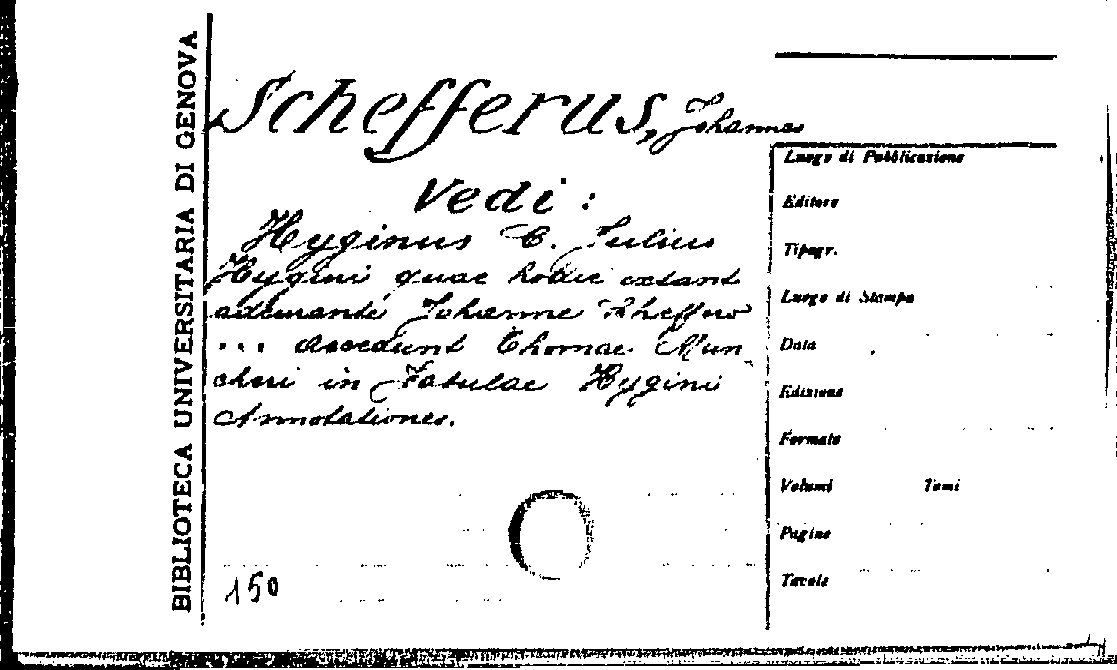 BIBLIOTECA UNIVERSITARIA DI GENOVA
Schefferus, Johannes
Vedi:
Hyginus C. Julius
Hygini quae hodie extant
adcurante Johanne Scheffero
... Accedunt Thomae Mun
cheri in Fabulae Hygini
Annotationes.
150
Luogo di Pubblicazione
Editore
Tipogr.
Luogo di Stampa
Data
Edizione
Formato
Volumi Tomi
Pagine
Tavole